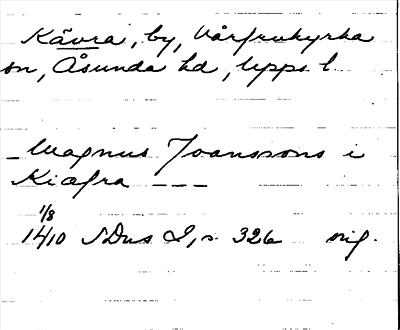 Kävra, by, Vårfrukyrka
sn, Åsunda hd, Upps. l.
_ Magnus Joanssons i
Kiafra _ _ _
1/8
1410 SDns I, s. 326 orig.